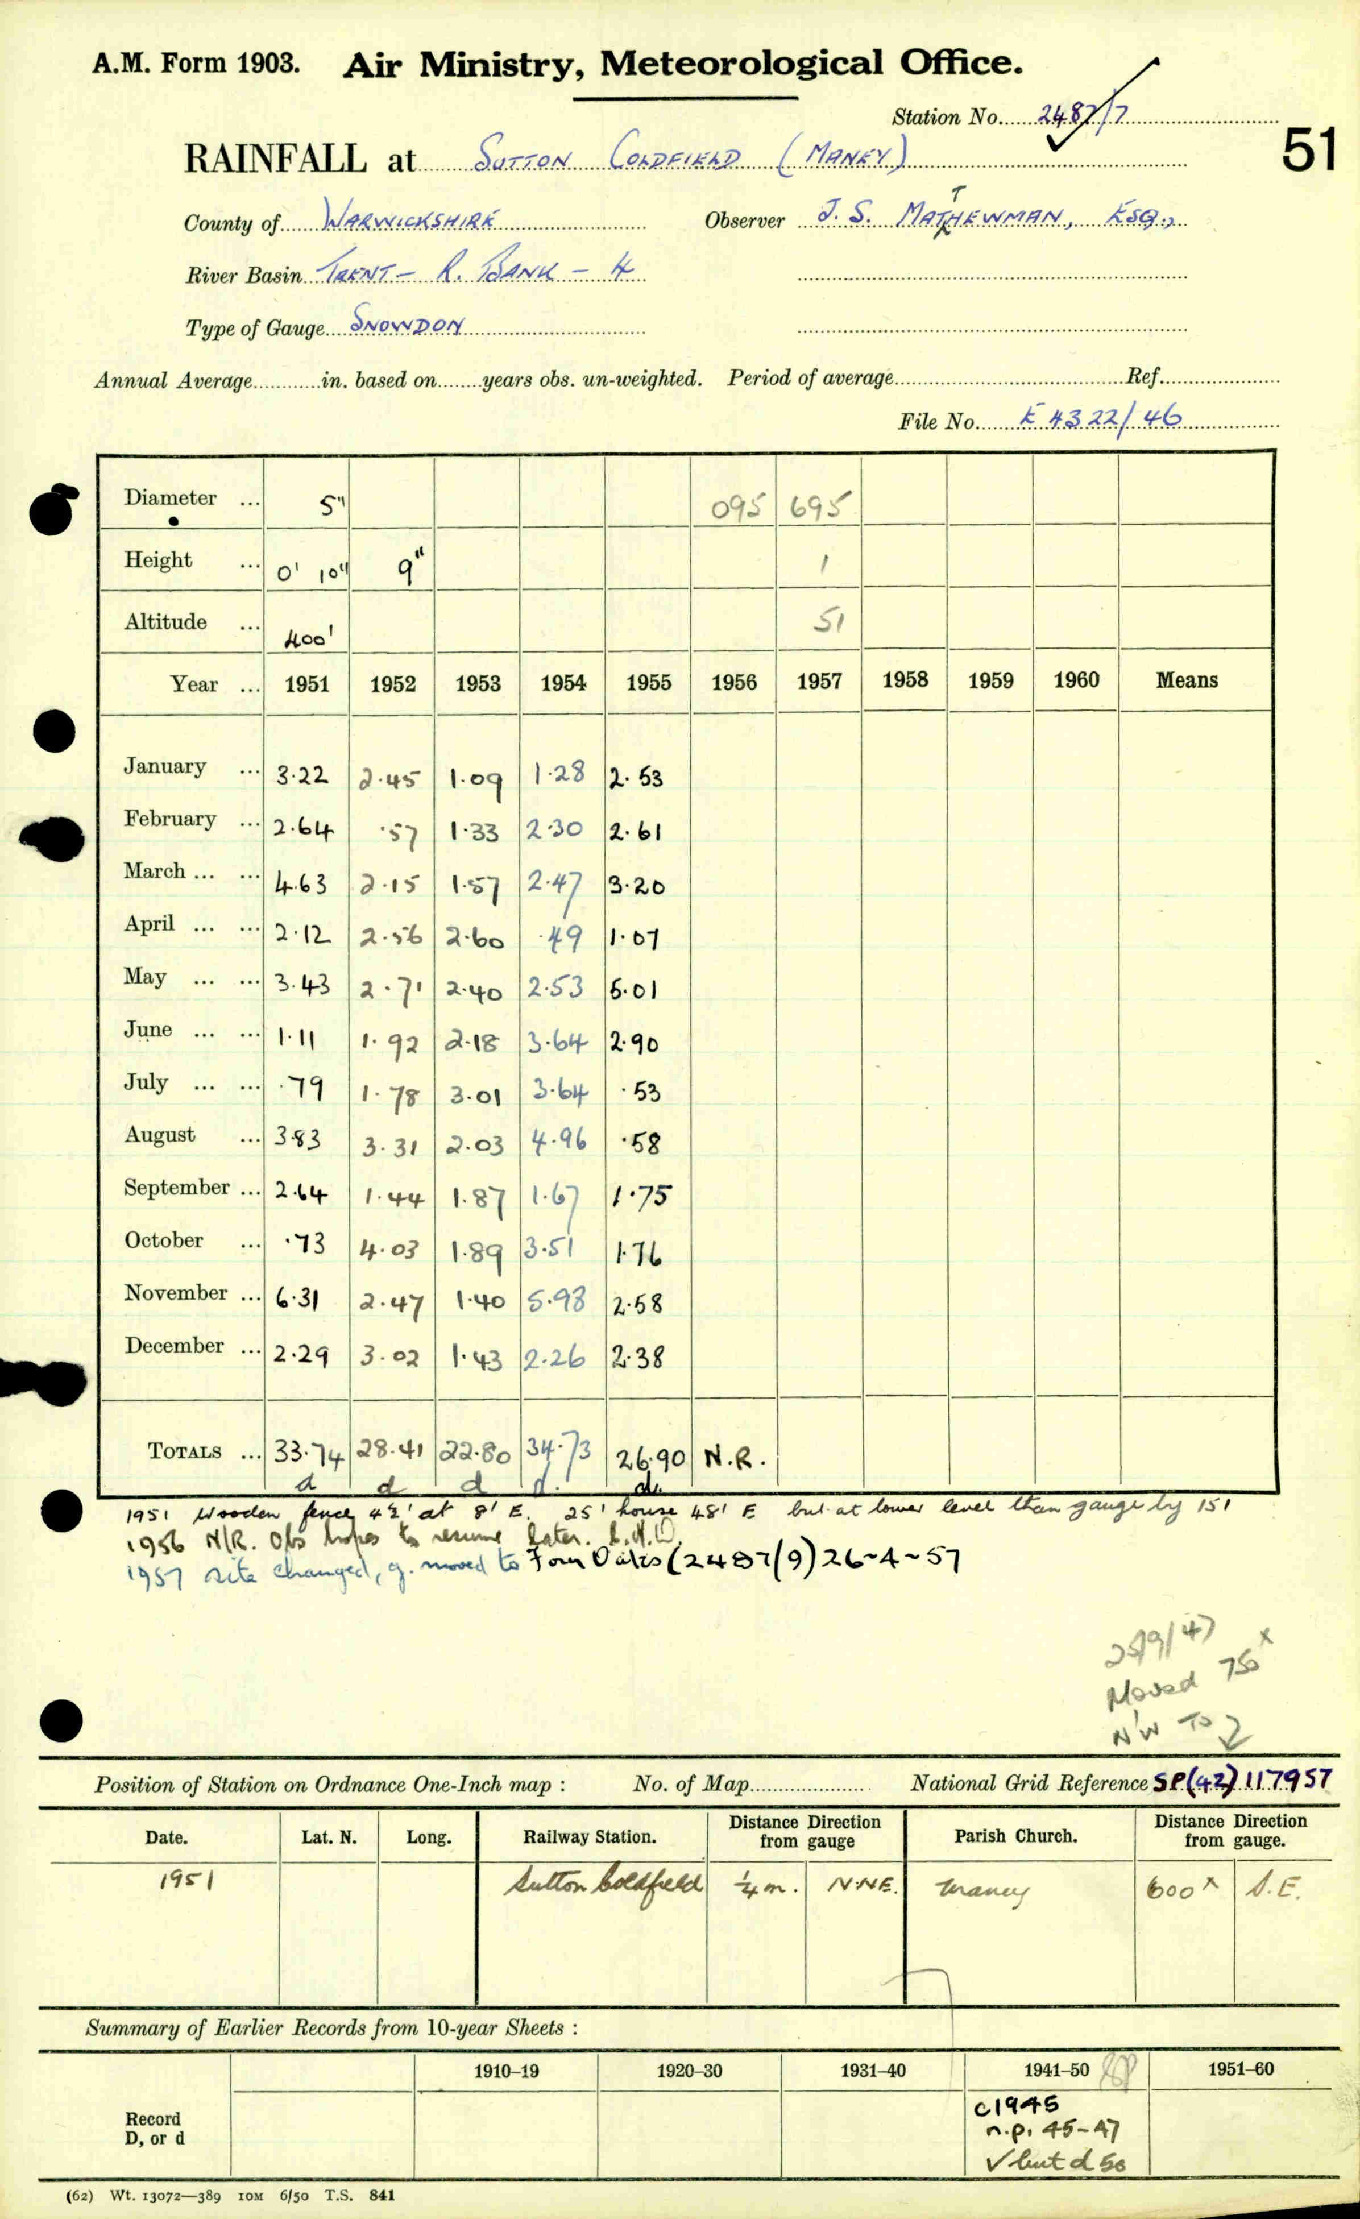 A.M. Form 1903. Air Ministry, Meteorological Office.
Station No. 2487/7
51
RAINFALL at SUTTON COLDFIELD (MANEY)
County of WARWICKSHIRE Observer J. S. MATTHEWMAN, ESQ.,
River Basin TRENT - R. BANK - 4
Type of Gauge SNOWDON
Annual Average in. based on years obs. un-weighted. Period of average Ref.
File No. E 4322/46
Diameter ... 5" 095 695
Height ... 0' 10" 9" 1
Altitude ... 400' 51
Year ... 1951 1952 1953 1954 1955 1956 1957 1958 1959 1960 Means
January ... 3.22 2.45 1.09 1.28 2.53
February ... 2.64 .57 1.33 2.30 2.61
March ... ... 4.63 2.15 1.57 2.47 3.20
April ... ... 2.12 2.56 2.60 .49 1.07
May ... ... 3.43 2.71 2.40 2.53 5.01
June ... ... 1.11 1.92 2.18 3.64 2.90
July ... ... .79 1.78 3.01 3.64 .53
August ... 3.83 3.31 2.03 4.96 .58
September ... 2.64 1.44 1.87 1.67 1.75
October ... .73 4.03 1.89 3.51 1.76
November ... 6.31 2.47 1.40 5.98 2.58
December ... 2.29 3.02 1.43 2.26 2.38
TOTALS ... 33.74 28.41 22.80 34.73 26.90 N.R.
d d d d. d.
1951 Wooden fence 4½' at 8' E. 25' house 48' E but at lower level than gauge by 15'
1956 N/R. Obs hopes to resume later.
1957 site changed, g. moved to Four Oaks (2487/9) 26-4-57
25/9/47
Moved 750x
N'W To
Position of Station on Ordnance One-Inch map : No. of Map National Grid Reference SP(42) 117957
Date. Lat. N. Long. Railway Station. Distance from gauge Direction Parish Church. Distance from gauge. Direction
1951 Sutton Coldfield ¼ m. N.NE. Maney 600x S.E.
Summary of Earlier Records from 10-year Sheets :
1910–19 1920–30 1931–40 1941–50 1951–60
Record D, or d
c1945
n.p. 45-47
✓ but d 50
(62) Wt. 13072—389 10M 6/50 T.S. 841